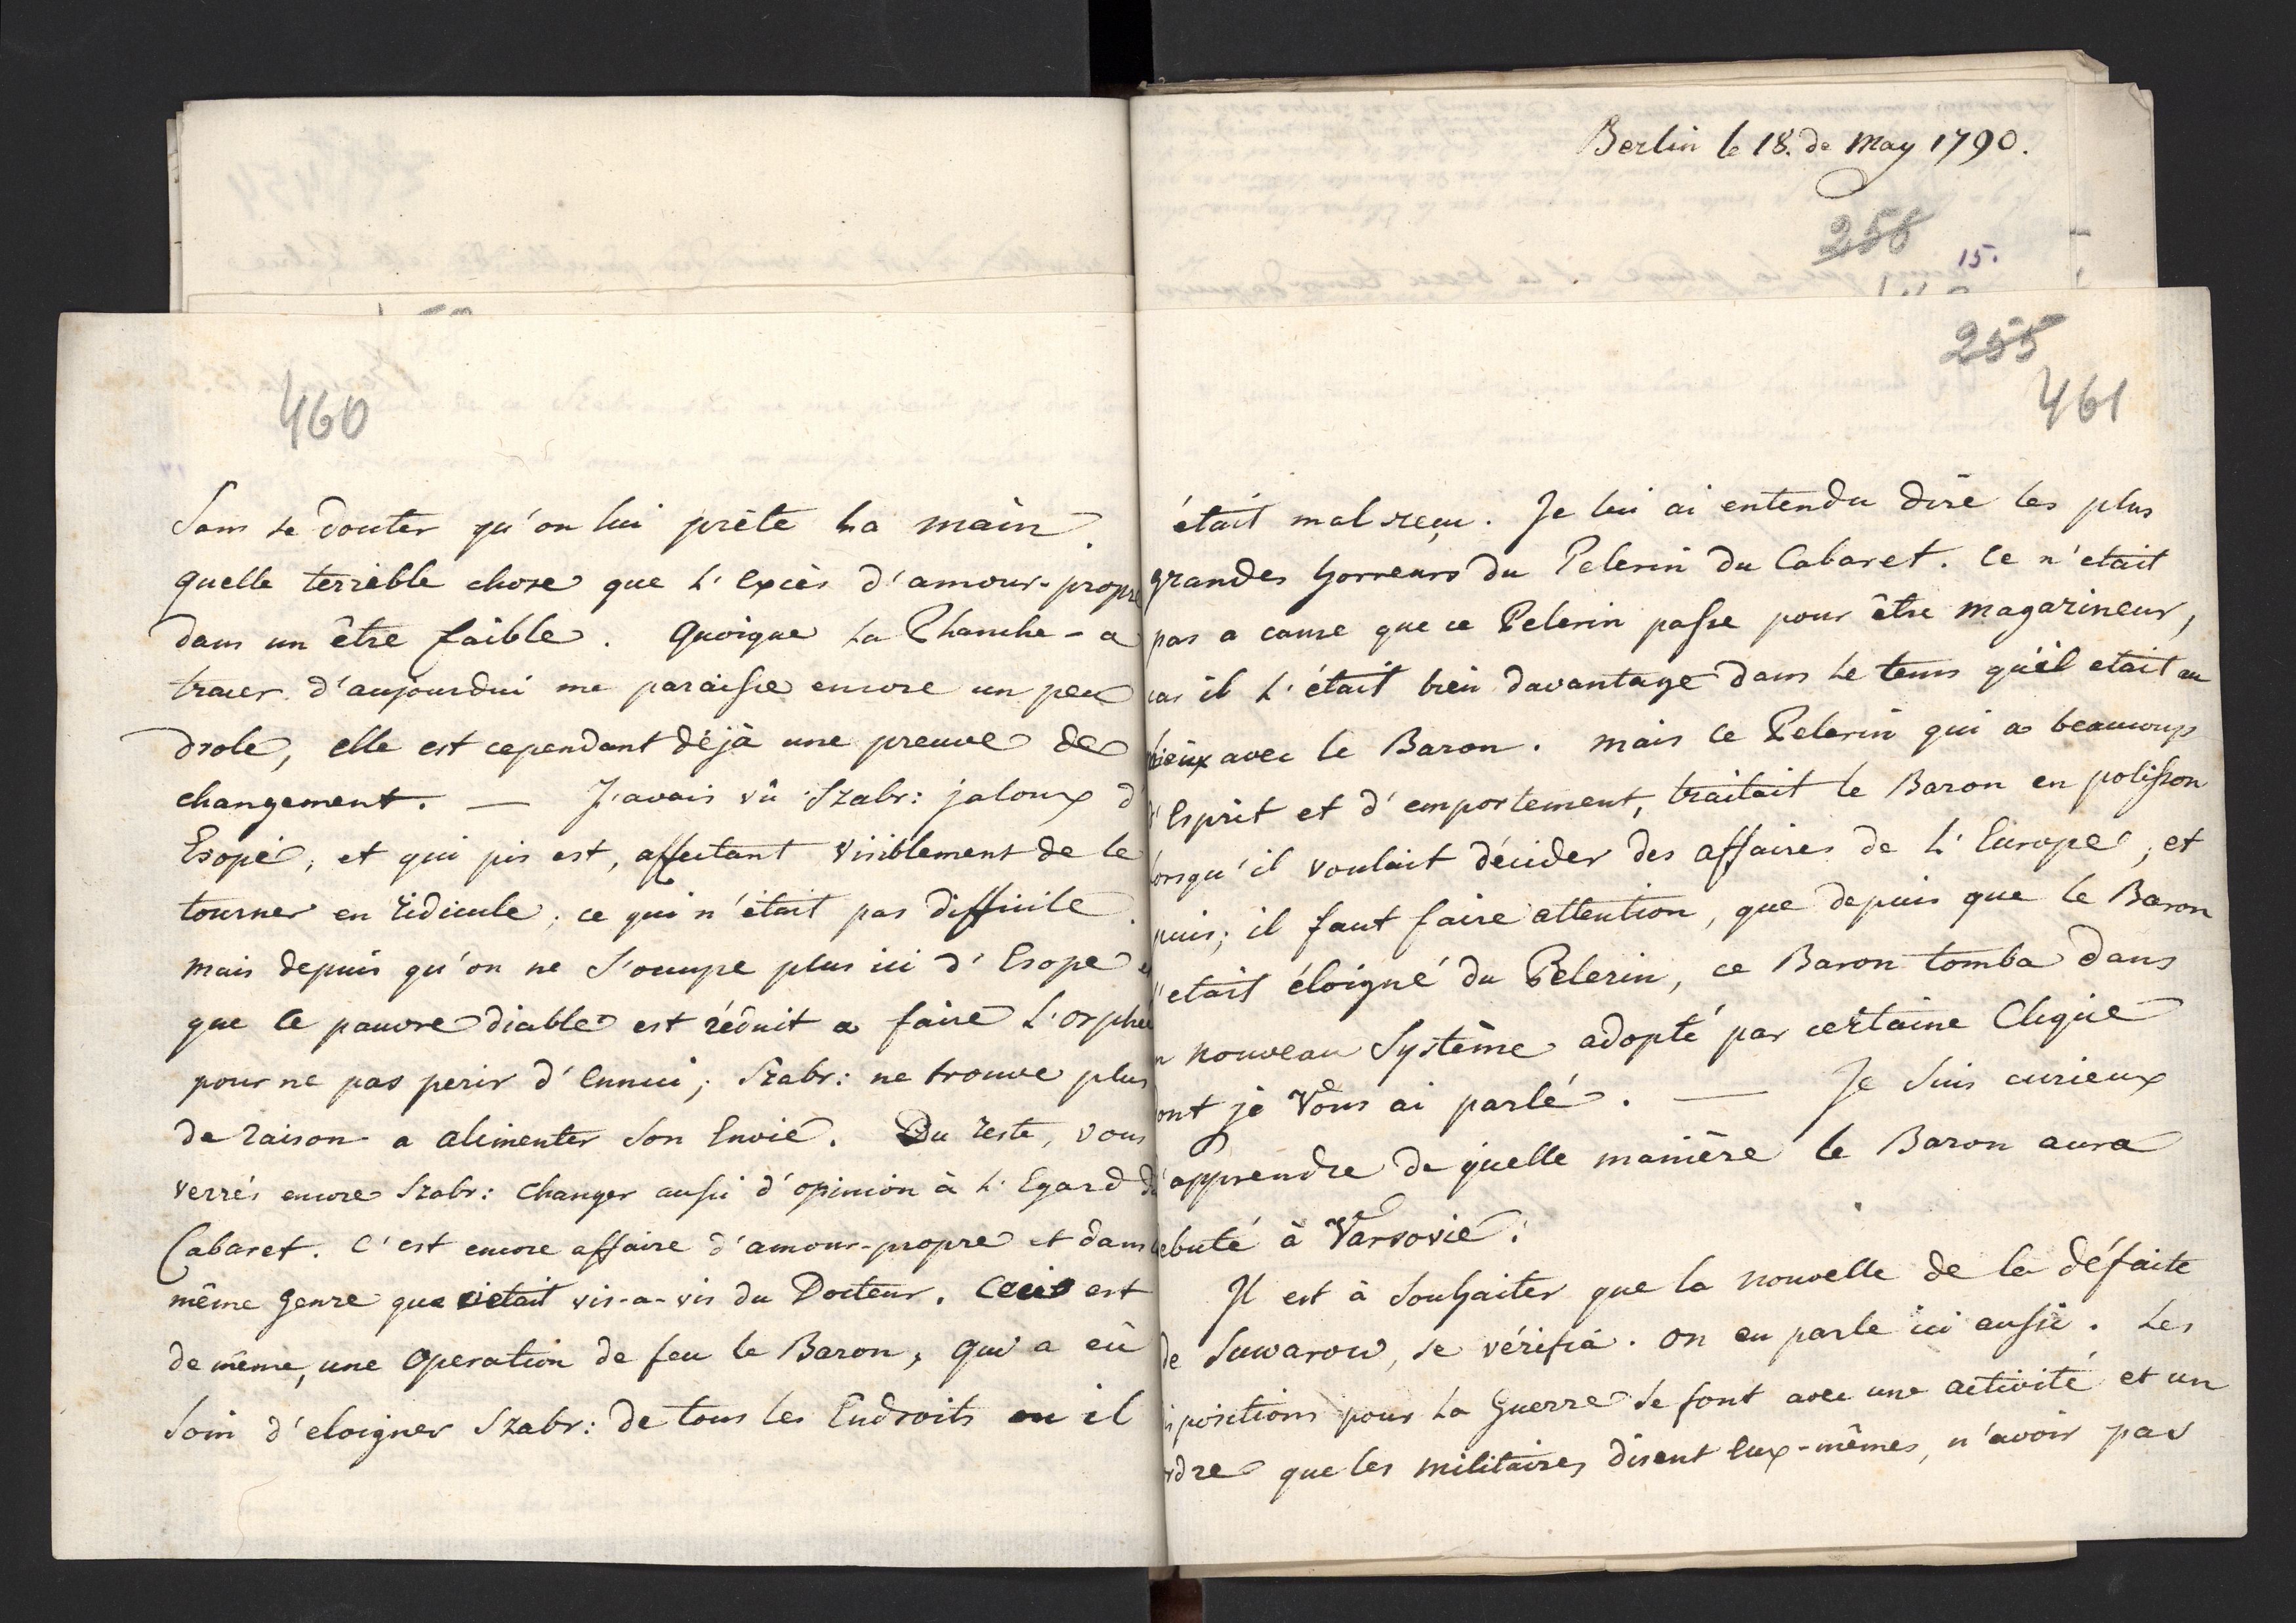 Berlin le 18. de May 1790.
258
15.
460
Sans se douter qu'on lui prète la main.
quelle terrible chose que l'excès d'amour-propre
dans un être faible. Quoique la Phanche-a
tracer d'aujourdui me paraisse encore un peu
drole, elle est cependant déjà une preuve de
changement. — J'avais vû Szabr: jaloux d'
Esope, et qui pis est, affectant visiblement de le
tourner en ridicule; ce qui n'était pas difficile.
mais depuis qu'on ne s'occupe plus ici d'Esope et
que ce pauvre diable est réduit a faire l'orphée
pour ne pas perir d'Ennui; Szabr: ne trouve plus
de raison a alimenter son Envie. Du reste, vous
verrés encore Szabr: changer aussi d'opinion à l'Egard du
Cabaret. C'est encore affaire d'amour-propre et dans le
même genre que c'etait vis-a-vis du Docteur. Ceci est
de même, une Operation de feu le Baron, qui a eû
soin d'eloigner Szabr: de tous les Endroits ou il
255
461
était mal reçu. Je lui ai entendu dire les plus
grandes horreurs du Pelerin du Cabaret. Ce n'était
pas a cause que ce Pelerin passe pour être magazineur,
car il l'était bien davantage dans le tems qu'il etait au
mieux avec le Baron. mais ce Pelerin qui a beaucoup
d'Esprit et d'emportement, traitait le Baron en polisson
lorsqu'il voulait décider des affaires de l'Europe, et
puis; il faut faire attention, que depuis que le Baron
s'etait éloigné du Pelerin, ce Baron tomba dans
un nouveau Système adopté par certaine Clique
dont je Vous ai parlé. — Je suis curieux
d'apprendre de quelle manière le Baron aura
debuté à Varsovie.
Il est à souhaiter que la nouvelle de la défaite
de Suwarow, se vérifia. On en parle ici aussi. Les
dispositions pour la Guerre se font avec une activité et un
ordre que les militaires disent Eux-mêmes, n'avoir pas